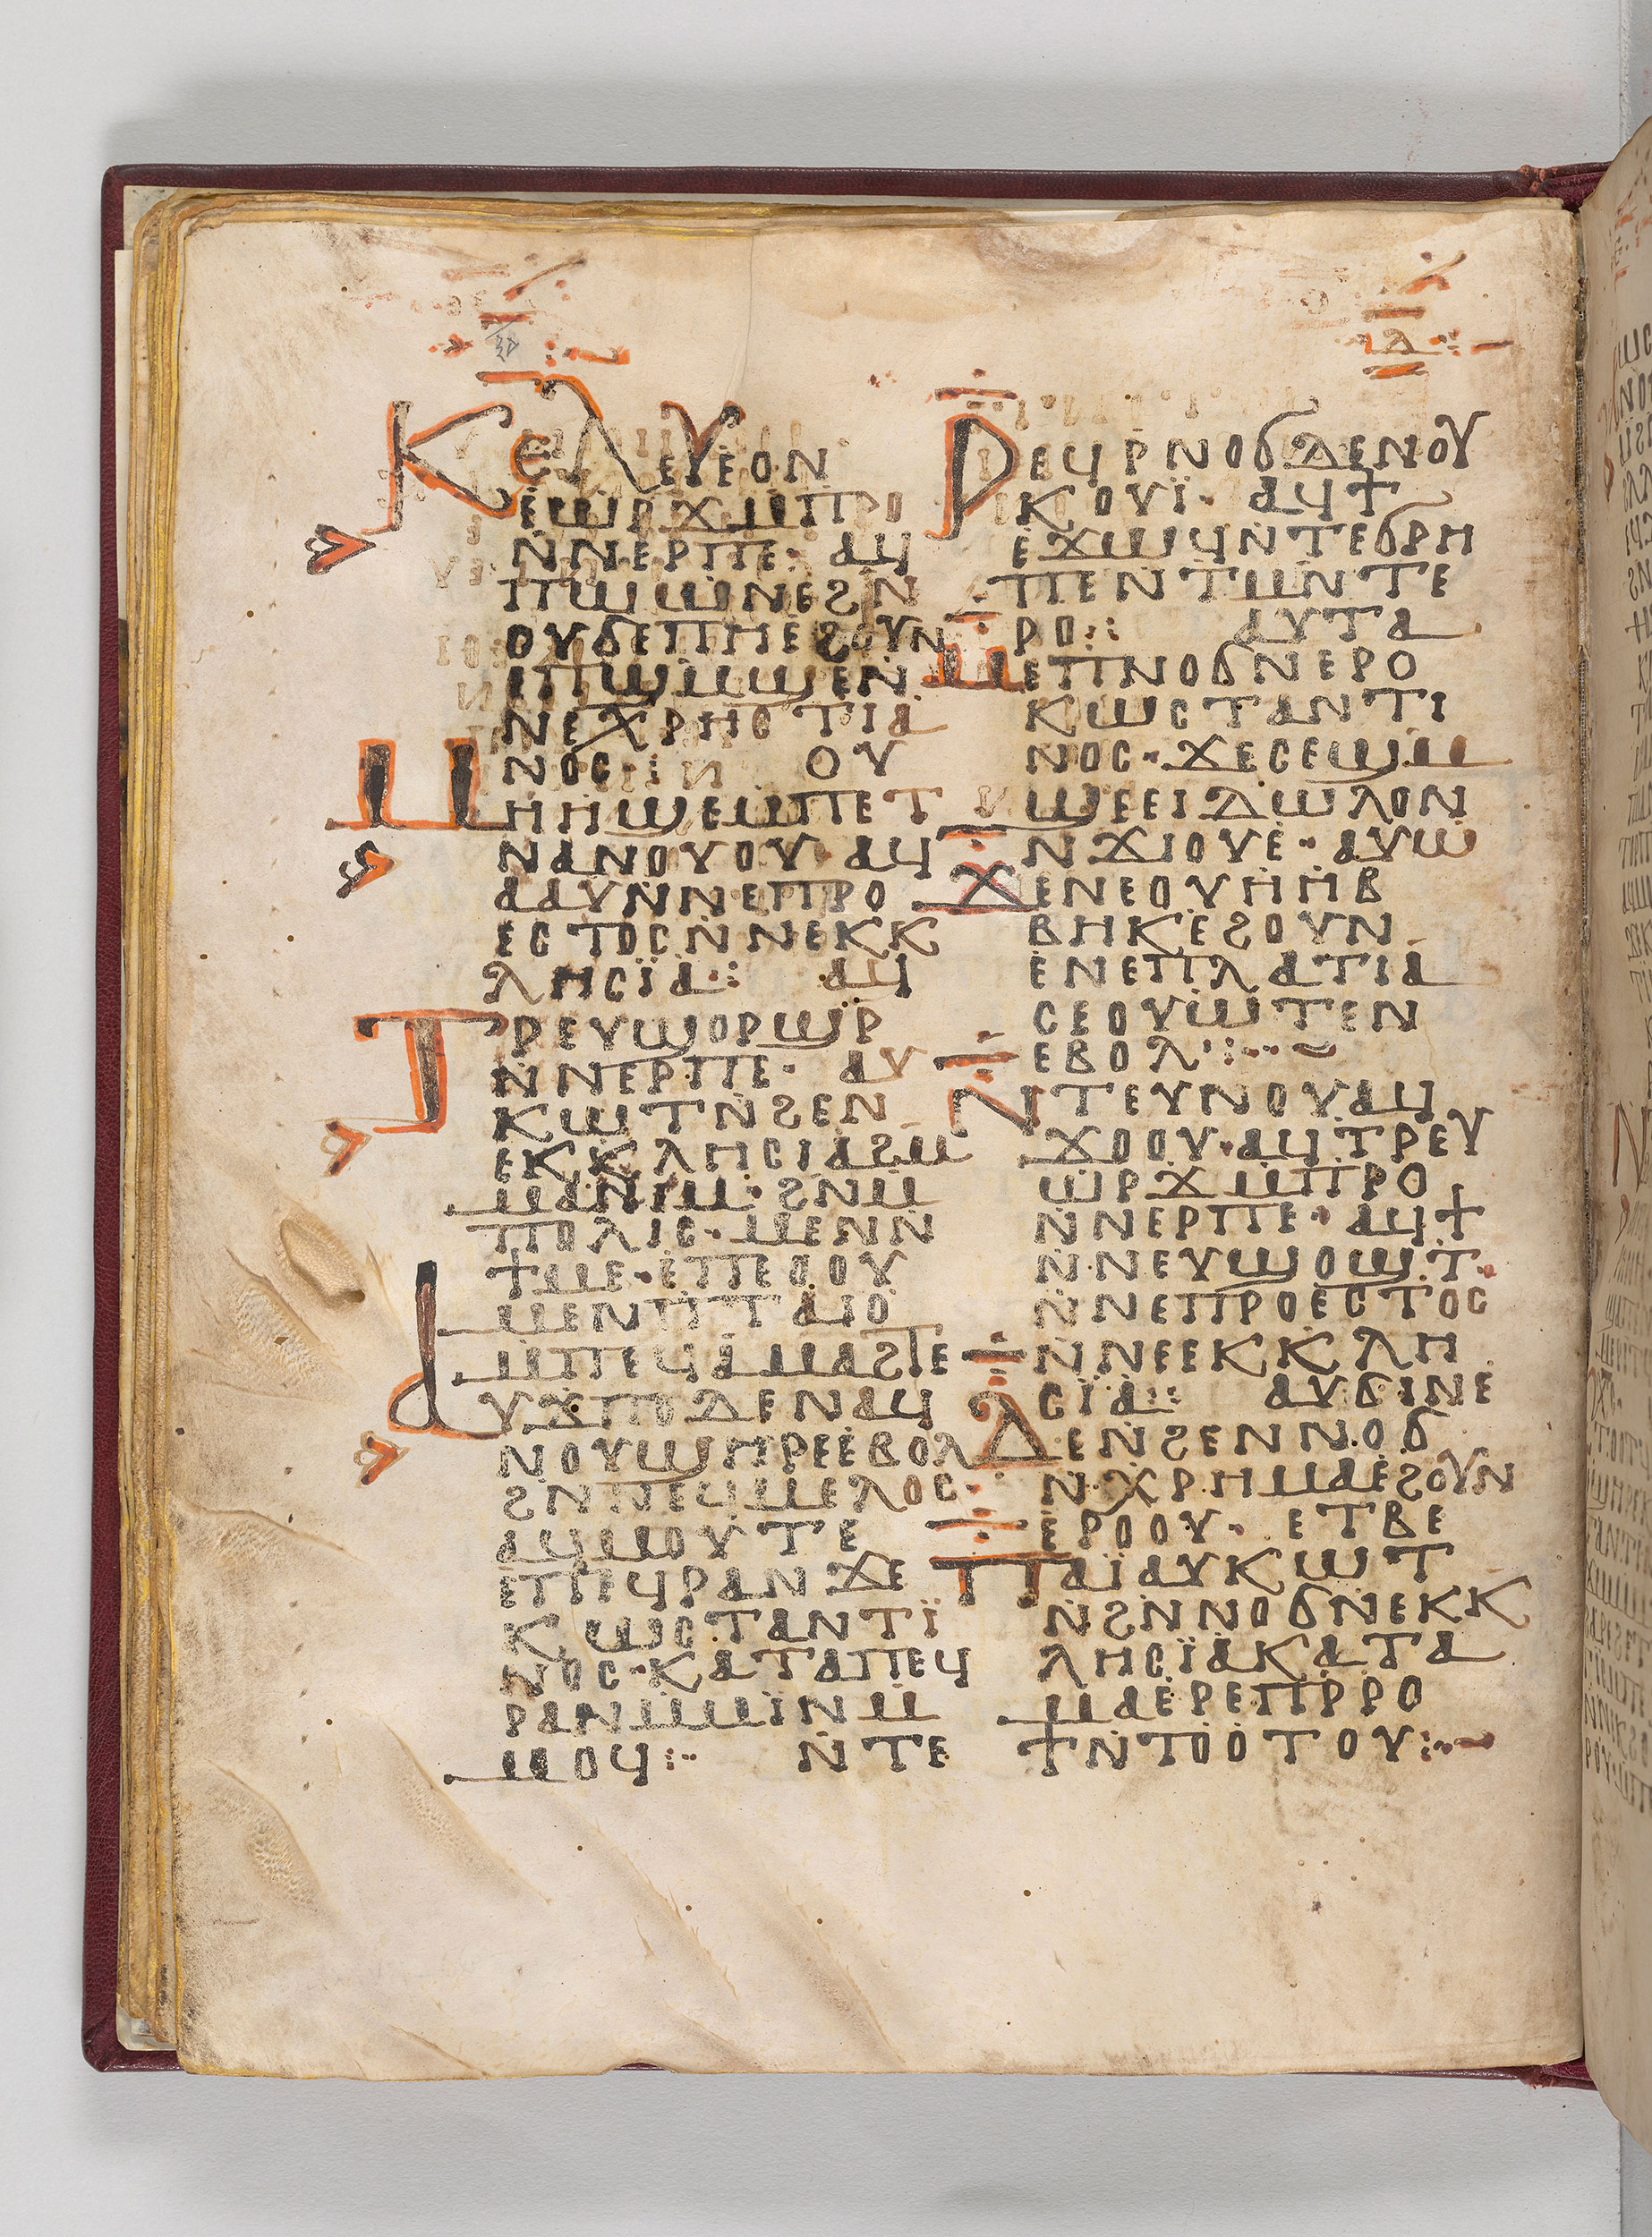 ⲇ
ⲕⲉⲗⲉⲩⲉⲟⲛ
ⲉϣⲣϫⲙⲡⲣⲟ
ⲛ̇ⲛⲉⲣⲡⲉ· ⲁϥ
ⲡⲱⲱⲛⲉϩⲛ
ⲟⲩϭⲉⲡⲏⲉϩⲟⲩⲛ
ⲉⲡϣⲙϣⲉⲛ̇
ⲛⲉⲭⲣⲏⲥⲧⲓⲁ
ⲛⲟⲥ⁝ ⲟⲩ
ⲙⲏⲏϣⲉⲙⲡⲉⲧ
ⲛⲁⲛⲟⲩⲟⲩ· ⲁϥ
ⲁⲁⲩⲛ̇ⲛⲉⲡⲣⲟ
ⲉⲥⲧⲟⲥⲛ̇ⲛⲉⲕⲕ
ⲗⲏⲥⲓ̈ⲁ⁝ ⲁϥ
ⲧⲣⲉⲩϣⲟⲣϣⲣ̇
ⲛ̇ⲛⲉⲣⲡⲉ· ⲁⲩ
ⲕⲱⲧⲛ̇ϩⲉⲛ
ⲉⲕⲕⲗⲏⲥⲓⲁϩⲙ
ⲙⲁⲛⲓⲙ· ϩⲛⲙ
ⲡⲟⲗⲓⲥ· ⲙⲉⲛⲛ
ϯⲙⲉ· ⲉ̇ⲡⲉⲟⲟⲩ
ⲙⲉⲛⲡⲧⲁⲓⲟ
ⲙⲡⲉϥⲁⲙⲁϩⲧⲉ
ⲁⲩϫⲡⲟⲇⲉⲛⲁϥ
ⲛⲟⲩϣⲏⲣⲉⲉ̇ⲃⲟⲗ
ϩⲛⲛⲉϥⲙⲉⲗⲟⲥ·
ⲁϥⲙⲟⲩⲧⲉ
ⲉⲡⲉϥⲣⲁⲛϫⲉ
ⲕⲱⲥⲧⲁⲛⲧⲓ̈
ⲛⲟⲥ· ⲕⲁⲧⲁⲡⲉϥ
ⲣⲁⲛⲙⲙⲓ̇ⲛⲙ
ⲙⲟϥ⁝ ⲛ̇ⲧⲉ
ⲣⲉϥⲣⲛⲟϭⲇⲉⲛⲟⲩ
ⲕⲟⲩⲓ̈· ⲁϥϯ
ⲉ̇ϫⲱϥⲛ̇ⲧⲉϭⲣⲏ
ⲡⲉⲛⲧⲙⲛⲧⲉ
ⲣⲟ⁝ ⲁⲩⲧⲁ
ⲙⲉⲡⲛⲟϭⲛⲉⲣⲟ
ⲕⲱⲥⲧⲁⲛⲧⲓ
ⲛⲟⲥ· ϫⲉⲥⲉϣⲙ
ϣⲉⲉⲓⲇⲱⲗⲟⲛ
ⲛϫⲓⲟⲩⲉ̇· ⲁⲩⲱ
ϫⲉⲛⲉⲟⲩⲏⲏⲃ
ⲃⲏⲕⲉ̇ϩⲟⲩⲛ
ⲉ̇ⲛⲉⲡⲗⲁⲧⲓⲁ
ⲥⲉⲟⲩⲱⲧⲉⲛ
ⲉⲃⲟⲗ⁝
ⲛ̇ⲧⲉⲩⲛⲟⲩⲁϥ
ϫⲟⲟⲩ· ⲁϥⲧⲣⲉⲩ
ϣⲣϫⲙⲡⲣⲟ
ⲛ̇ⲛⲉⲣⲡⲉ· ⲁϥϯ
ⲛ̇ⲛⲉⲩϣⲟϣⲧ·
ⲛ̇ⲛⲉⲡⲣⲟⲉⲥⲧⲟⲥ
ⲛ̇ⲛⲉⲉⲕⲕⲗⲏ
ⲥⲓ̈ⲁ⁝ ⲁⲩϭⲓⲛⲉ
ⲇⲉⲛ̇ϩⲉⲛⲛⲟϭ
ⲛ̇ⲭⲣⲏⲙⲁⲉ̇ϩⲟⲩⲛ
ⲉ̇ⲣⲟⲟⲩ· ⲉⲧⲃⲉ
ⲡⲁⲓ̈ⲁⲩⲕⲱⲧ
ⲛ̇ϩⲛ̇ⲛⲟϭⲛⲉⲕⲕ
ⲗⲏⲥⲓ̈ⲁⲕⲁⲧⲁ
ⲙⲁⲉ̇ⲣⲉⲡⲣⲣⲟ
ϯⲛ̇ⲧⲟⲟⲧⲟⲩ⁝